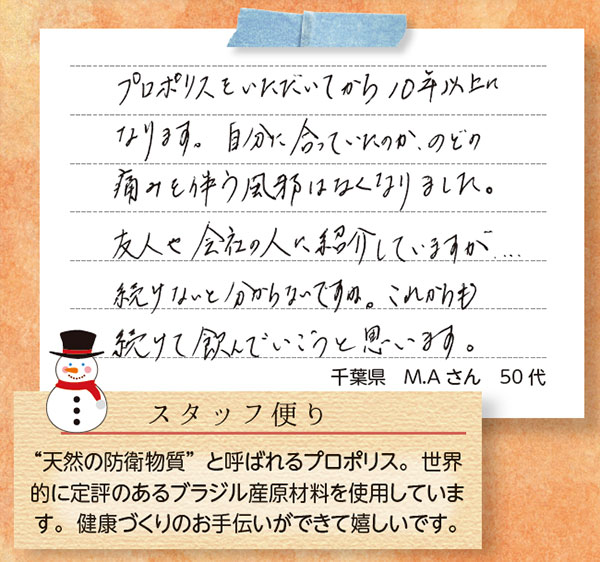 プロポリスをいただいてから10年以上に
なります。自分に合っていたのか、のどの
痛みを伴う風邪はなくなりました。
友人や会社の人に紹介していますが....
続けないと分からないですね。これからも
続けて飲んでいこうと思います。
千葉県 M.Aさん 50代
スタッフ便り
“天然の防衛物質”と呼ばれるプロポリス。世界
的に定評のあるブラジル産原材料を使用していま
す。健康づくりのお手伝いができて嬉しいです。